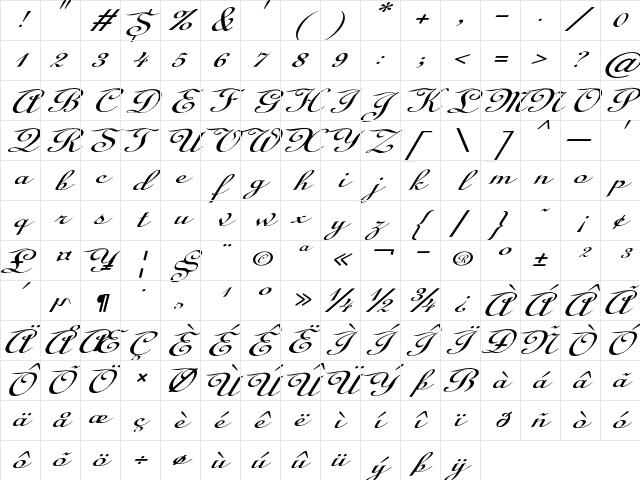 ! " # $ % & ' ( ) * + , - . / 0
1 2 3 4 5 6 7 8 9 : ; < = > ? @
A B C D E F G H I J K L M N O P
Q R S T U V W X Y Z [ \ ] ^ _ '
a b c d e f g h i j k l m n o p
q r s t u v w x y z { | } ˜ ¡ ¢
£ ¤ ¥ ¦ § ¨ © ª « ¬ - ® º ± ² ³
´ µ ¶ · ¸ ¹ º » ¼ ½ ¾ ¿ À Á Â Ã
Ä Å Æ Ç È É Ê Ë Ì Í Î Ï Ð Ñ Ò Ó
Ô Õ Ö × Ø Ù Ú Û Ü Ý Þ ß à á â ã
ä å æ ç è é ê ë ì í î ï ð ñ ò ó
ô õ ö ÷ ø ù ú û ü ý þ ÿ